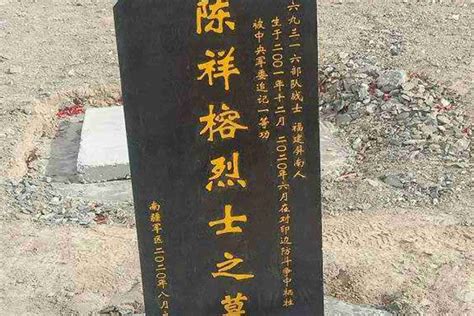 六九三一六部队战士 福建屏南人
生于二〇〇一年十二月 二〇二〇年六月在对印边防斗争中牺牲
被中央军委追记一等功
陈祥榕烈士之墓
南疆军区二〇二〇年八月